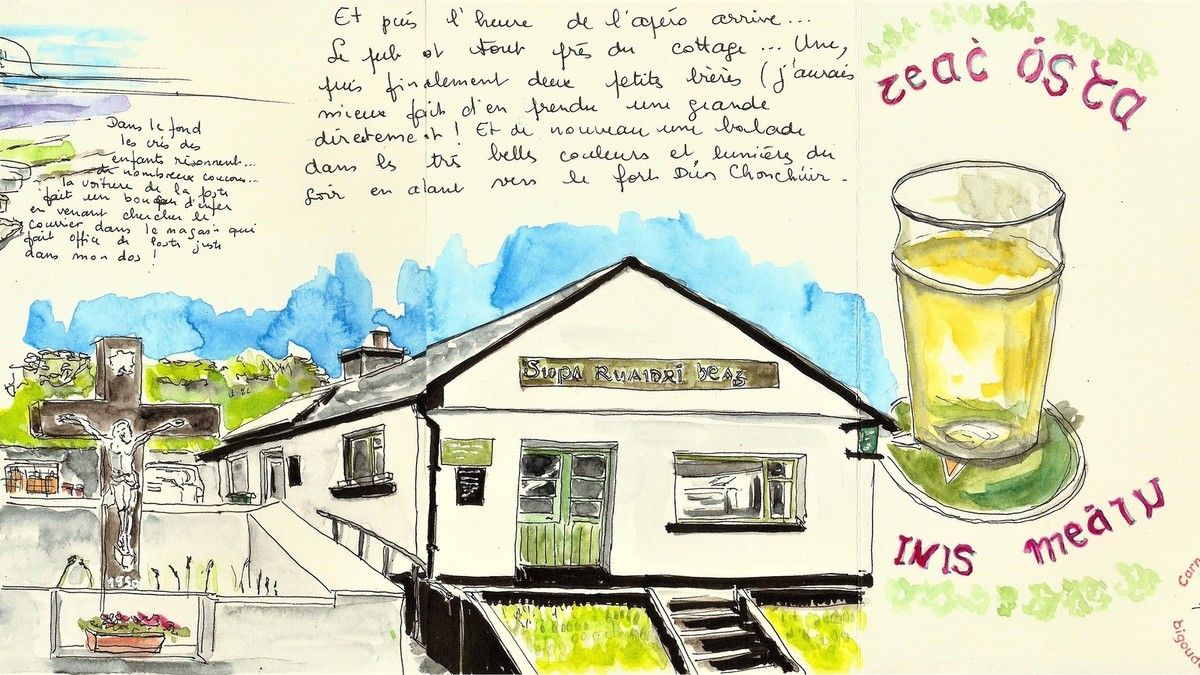 Et puis l'heure de l'apéro arrive...
Le pub est tout près du cottage... Une,
puis finalement deux petits bières (j'aurais
mieux fait d'en prendre une grande
directement ! Et de nouveau une balade
dans les très belles couleurs et lumières du
soir en allant vers le fort Dún Chonchúir.
Dans le fond
les cris des
enfants résonnent...
de nombreux coucous...
la voiture de la poste
fait un boucan d'enfer
en venant chercher le
courrier dans le magasin qui
fait office de Poste juste
dans mon dos !
Teaċ Ósta
Siopa Ruaidrí beag
1950
INIS meáin
Carn
bigoud